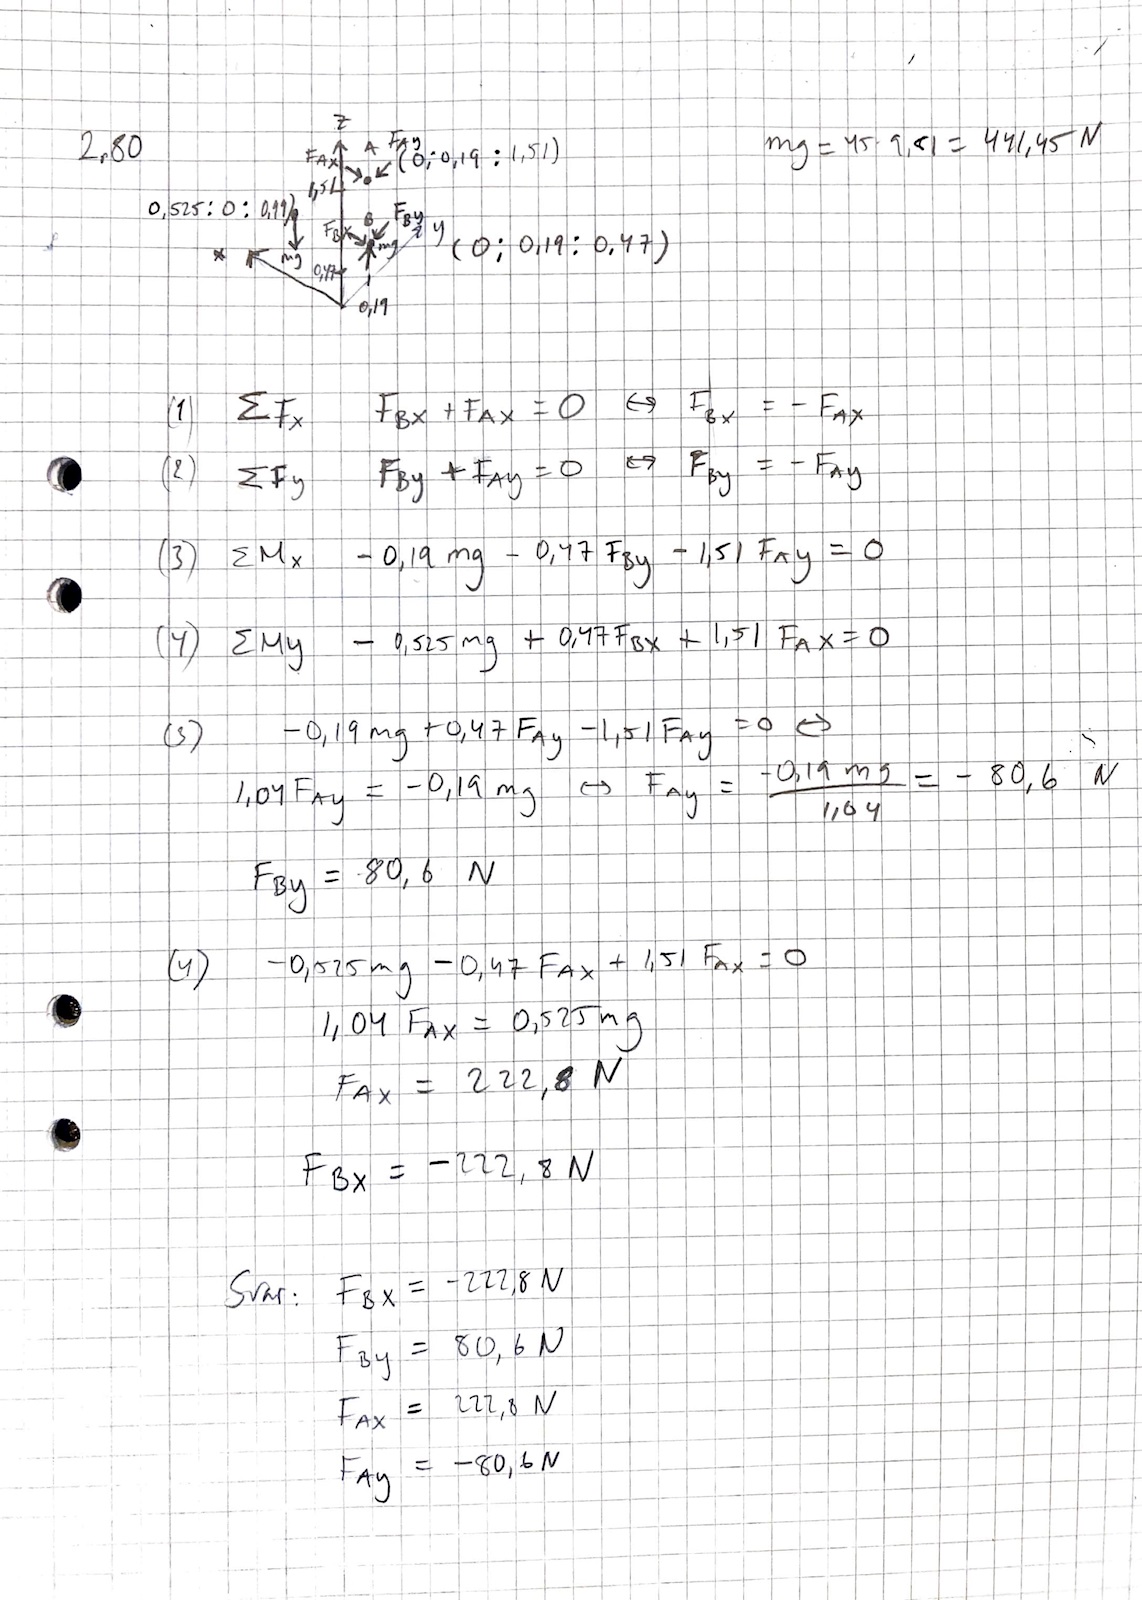 2,80
mg = 45·9,81 = 441,45 N
z
F_AX A F_Ay (0; 0,19 : 1,51)
1,51
0,525 : 0 : 0,99)
F_BX B F_By y (0; 0,19 : 0,47)
x mg mg
0,47
0,19
(1) ΣF_x F_BX + F_AX = 0 ↔ F_BX = - F_AX
(2) ΣF_y F_By + F_Ay = 0 ↔ F_By = - F_Ay
(3) ΣM_x - 0,19 mg - 0,47 F_By - 1,51 F_Ay = 0
(4) ΣM_y - 0,525 mg + 0,47 F_BX + 1,51 F_AX = 0
(3) -0,19 mg + 0,47 F_Ay - 1,51 F_Ay = 0 ↔
1,04 F_Ay = -0,19 mg ↔ F_Ay = -0,19 mg / 1,04 = - 80,6 N
F_By = 80,6 N
(4) -0,525 mg - 0,47 F_AX + 1,51 F_AX = 0
1,04 F_AX = 0,525 mg
F_AX = 222,8 N
F_BX = -222,8 N
Svar: F_BX = -222,8 N
F_By = 80,6 N
F_AX = 222,8 N
F_Ay = -80,6 N